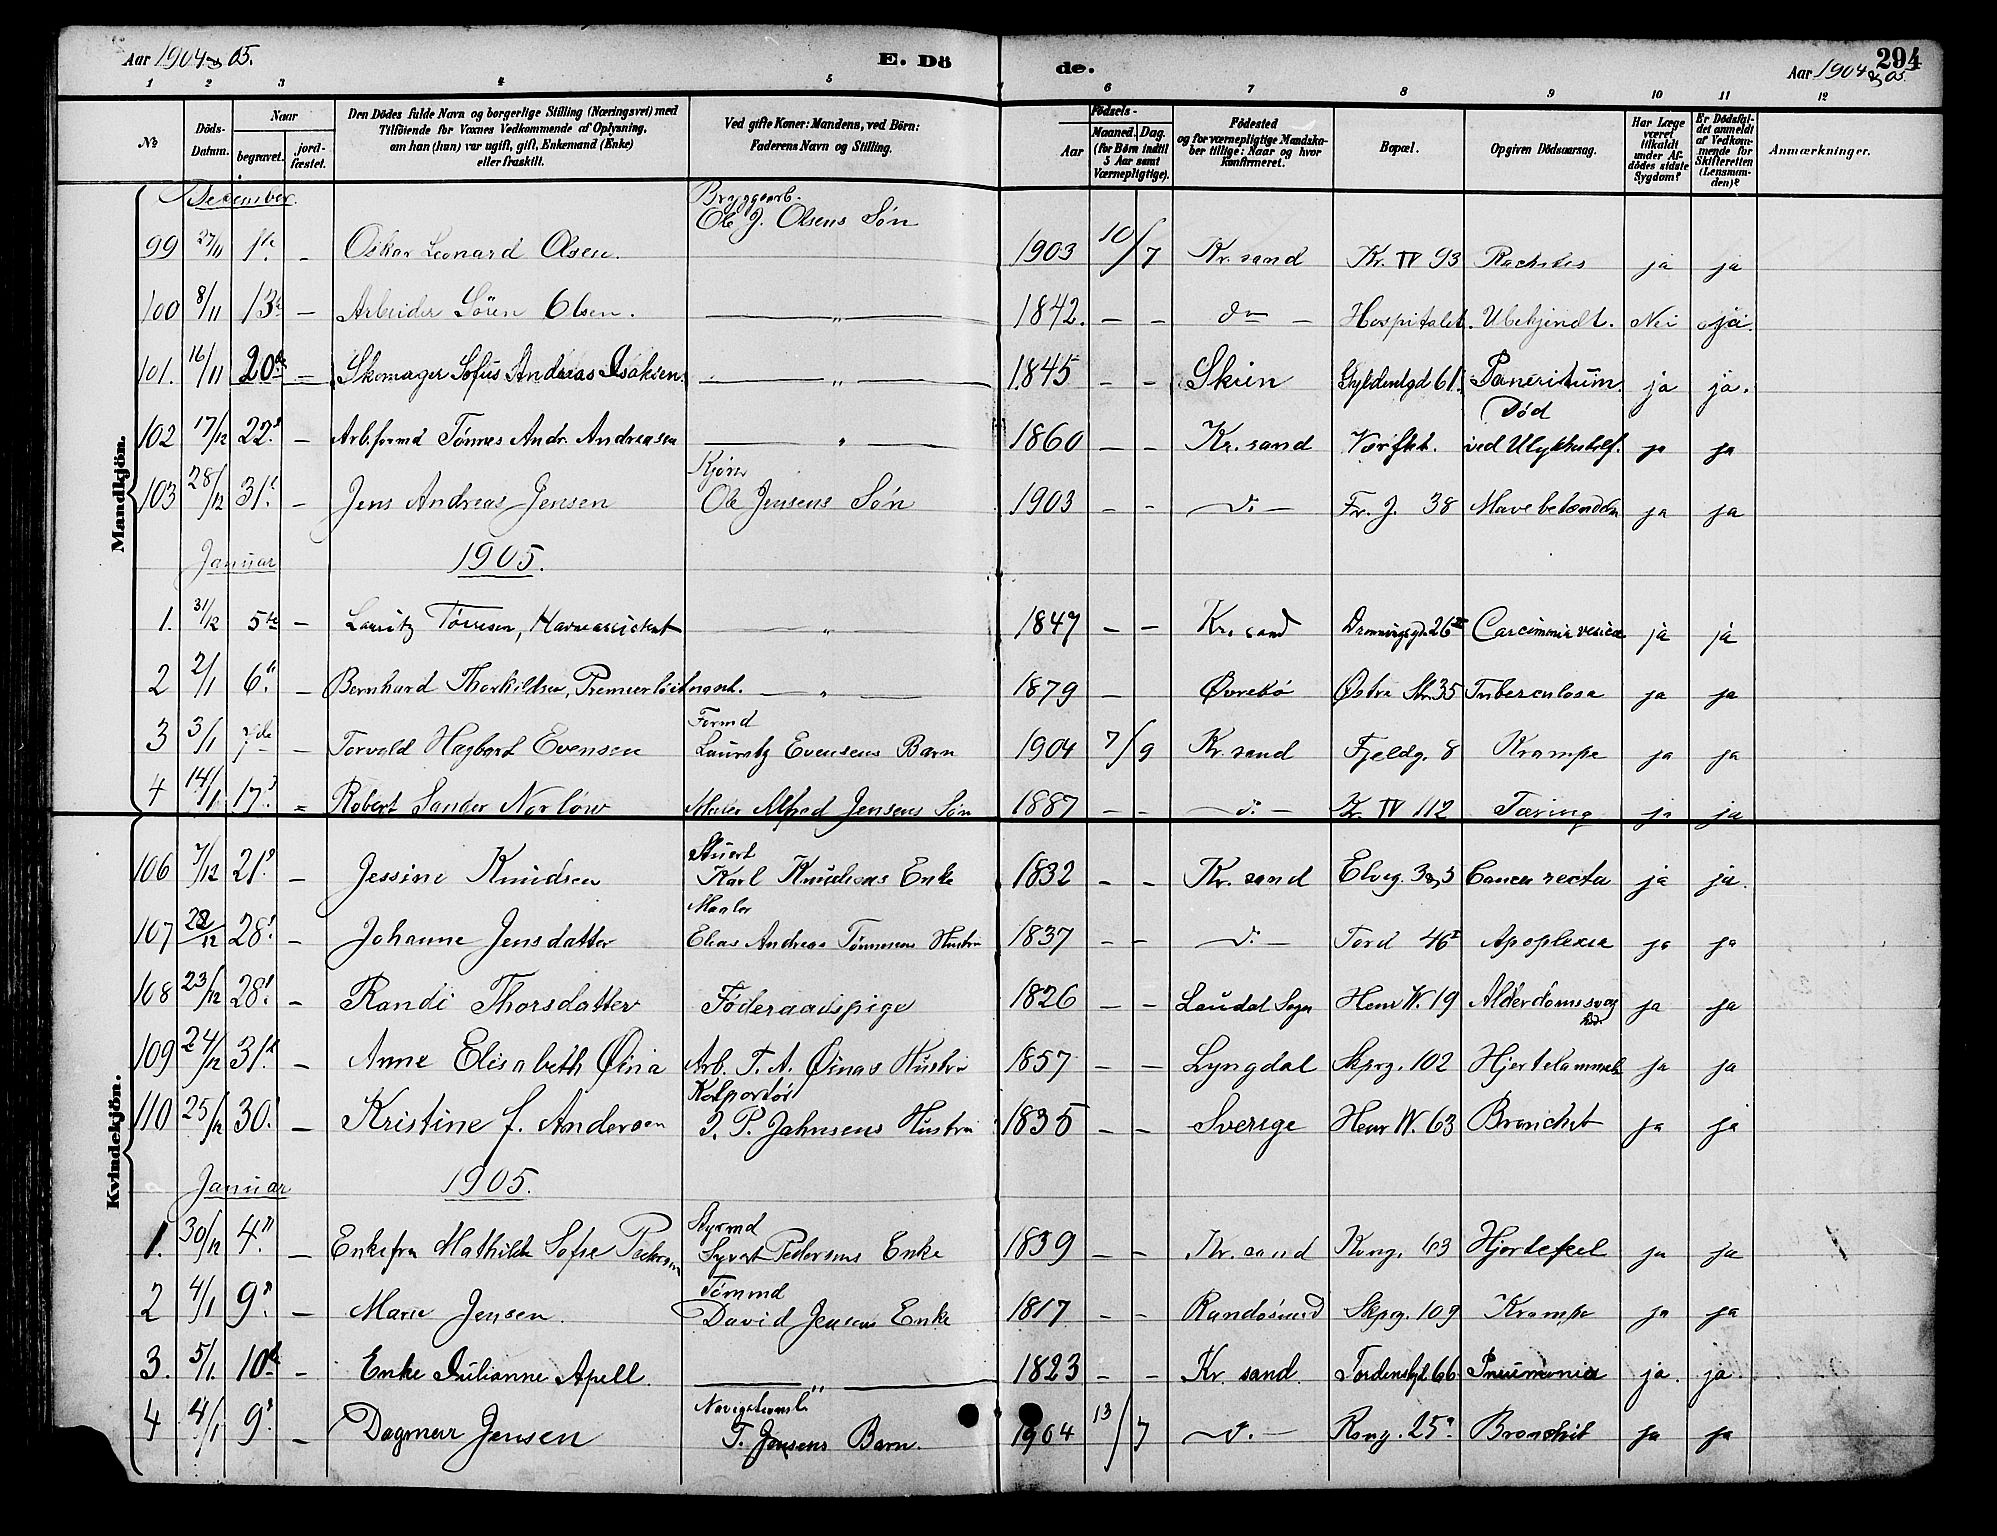 Aar 1904 & 05.
E. Dö
de.
294
Aar 1904 & 05
1 2 3 4 5 6 7 8 9 10 11 12
No
Döds-Datum.
Naar
begravet.
jord-fæstet.
Den Dödes fulde Navn og borgerlige Stilling (Næringsvei) med
Tilföiende for Voxnes Vedkommende af Oplysning,
om han (hun) var ugift, gift, Enkemand (Enke)
eller fraskilt.
Ved gifte Koner: Mandens, ved Börn:
Faderens Navn og Stilling.
Födsels-
Aar
Maaned. Dag.
(for Börn indtil
5 Aar samt
Værnepligtige).
Födested
og for værnepligtige Mandska-
ber tillige: Naar og hvor
konfirmeret.
Bopæl.
Opgiven Dödsaarsag.
Har Læge
været
tilkaldt
under Af-
dödes sidste
Sygdom?
Er Dödsfal-
det anmeldt
af Vedkom-
mende for
Skifteretten
(Lensman-
den)?
Anmærkninger.
Mandkjön.
December.
Bryggearb.
99 27/11 1te – Oskar Leonard Olsen. Ole J. Olsens Søn 1903 10/7 Kr.sand Kr. IV 93 Rachitis ja ja
100 8/11 13de – Arbeider Søren Olsen. — „ — 1842. – – do – Hospitalet. Ubekjendt. Nei ja.
101. 16/11 20de – Skomager Sofus Andreas Isaksen. — „ — 1845 – – Skien Gyldenlgd 61. ja ja.
Død
102 17/12 22. – Arb.formd Tønnes Andr. Andreasen — „ — 1860 – – Kr.sand ved Ulykkestilf. ja ja
103 28/12 31. – Jens Andreas Jensen Ole Jensens Søn 1903 – – do – Fr. J. 38 ja ja
Januar 1905.
1. 31/12 5te – Lauritz Tønnesen, Havneassistent — „ — 1847 – – Kr.sand ja ja
2 2/1 6. – Bernhard Thorkildsen, Premierløitnant. — „ — 1879 – Øvrebø Østre Str. 35 Tuberculose ja ja
Formd
3 3/1 7de – Torvald Hagbart Evensen Lauratz Evensens Barn 1904 7/9 Kr.sand Fjeldg. 8 Krampe ja ja
4 14/1 17. = Robert Sander Norløw Maler Alfred Jensens Søn 1887 – – do – Kr. IV 112 Tæring ja ja
Kvindekjön.
Stuert
106 7/12 21. – Jessine Knudsen Karl Knudsens Enke 1832 – – Kr.sand Elveg. Cancer recta ja ja.
Maaler
107 22/12 28. – Johanne Jensdatter Elias Andreas Tønnesens Hustru 1837 – – do – Tord 46 Apoplexia ja ja
108 23/12 28. – Randi Thorsdatter Føderaadspige 1826 – – Laudal Sogn Henr W. 19 Alderdomssvaghed. ja ja
109 24/12 31. – Anne Elisabeth Øina Arb. T. A. Øinas Hustru 1857 – – Lyngdal Skprg. 102 Hjertelammels ja ja
Kolportør
110 25/12 30. – Kristine f. Andersen J. P. Jahnsens Hustru 1835 – – Sverige Henr W. 63 Bronchit ja ja
Januar 1905.
Styrmd
1. 30/12 4. – Enkefru Mathilde Sofie Pedersen Syvert Pedersens Enke 1839 – – Kr.sand Kong. 63 Hjertefeil ja ja
Tømmd
2 4/1 9. – Marie Jensen. David Jensens Enke 1817 – – Randøsund Skprg. 109 Krampe ja ja
3. 5/1. 10de – Enke Julianne Apell. — „ — 1823 – – Kr.sand. Tordenskjd. 66 Pneumonia ja. ja.
Navigationsl.
4 4/1 9. – Dagmar Jensen T. Jensens Barn. 1904 13/7 do – Kong. 25 Bronchit ja ja